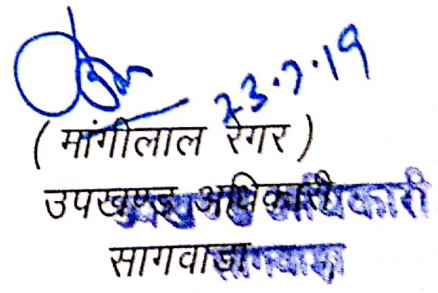 23.7.19
( मांगीलाल रेगर )
उपखण्ड अधिकारी
सागवाडा